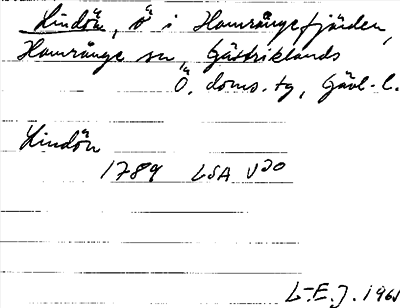 Lindön, ö i Hamrångefjärden,
Hamrånge sn, Gästriklands
Ö. doms. tg, Gävl. l.
Lindön
1789 LSA V20
L-E. J. 1961